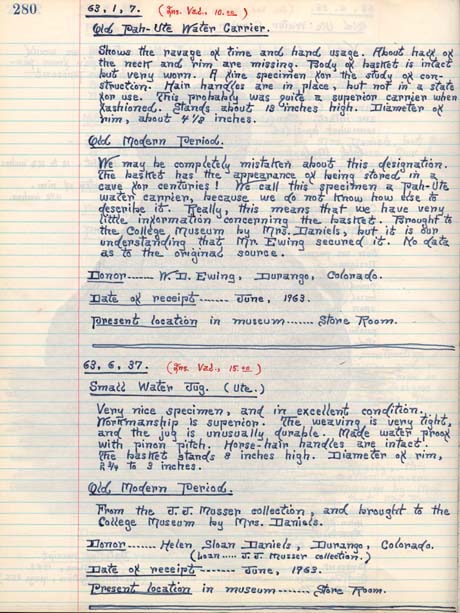 280
63, 1, 7. (Ins. Val., 10.00)
Old Pah-Ute Water Carrier.
Shows the ravage of time and hard usage. About half of
the neck and rim are missing. Body of basket is intact
but very worn. A fine specimen for the study of con-
struction. Hair handles are in place, but not in a state
for use. This probably was quite a superior carrier when
fashioned. Stands about 13 inches high. Diameter of
rim, about 4 1/2 inches.
Old Modern Period.
We may be completely mistaken about this designation.
The basket has the appearance of being stored in a
cave for centuries! We call this specimen a Pah-Ute
water carrier, because we do not know how else to
describe it. Really, this means that we have very
little information concerning the basket. Brought to
the College Museum by Mrs. Daniels, but it is our
understanding that Mr. Ewing secured it. No data
as to the original source.
Donor ---- W. D. Ewing, Durango, Colorado.
Date of receipt ------- June, 1963.
Present location in museum ------ Store Room.
63, 6, 37. (Ins. Val., 15.00)
Small Water Jug. (Ute.)
Very nice specimen, and in excellent condition.
Workmanship is superior. The weaving is very tight,
and the jug is unusually durable. Made water proof
with pinon pitch. Horse-hair handles are intact.
The basket stands 8 inches high. Diameter of rim,
2 3/4 to 3 inches.
Old Modern Period.
From the J. J. Musser collection, and brought to the
College Museum by Mrs. Daniels.
Donor ------ Helen Sloan Daniels, Durango, Colorado.
(Loan .... J. J. Musser collection.)
Date of receipt ------- June, 1963.
Present location in museum ------ Store Room.